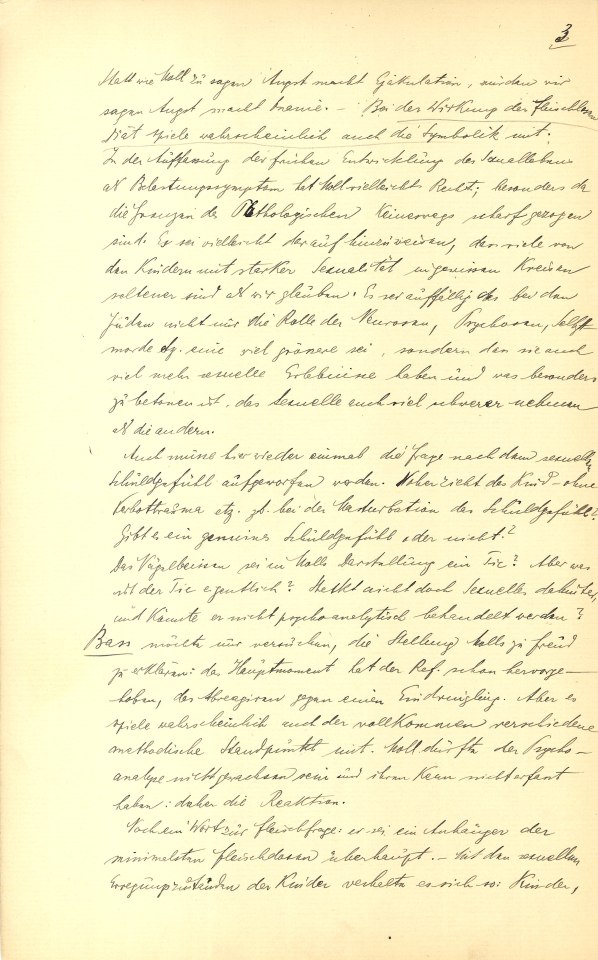 3
Statt wie Moll zu sagen Angst macht Ejakulation, würden wir
sagen Angst macht Onanie. – Bei der Wirkung der fleischlosen
Diät spiele wahrscheinlich auch die Symbolik mit.
In der Auffassung der frühen Entwicklung des Sexuallebens
als Belastungssymptom hat Moll vielleicht Recht; besonders da
die Grenzen des Pathologischen keineswegs scharf gezogen
sind. Es sei vielleicht darauf hinzuweisen, dass viele von
den Kindern mit starker Sexualität in gewissen Kreisen
seltener sind als wir glauben. Es sei auffällig das bei den
Juden nicht nur die Rolle der Neurosen, Psychosen, Selbst-
morde etz. eine viel grössere sei, sondern dass sie auch
viel mehr sexuelle Erlebnisse haben und was besonders
zu betonen ist, das Sexuelle auch viel schwerer nehmen
als die andern.
Auch müsse hier wieder einmal die Frage nach dem sexuellen
Schuldgefühl aufgeworfen werden. Woher zieht das Kind – ohne
Verbottrauma etz. zb. bei der Masturbation das Schuldgefühl?
Gibt es ein genuines Schuldgefühl oder nicht?
Das Nägelbeissen sei in Molls Darstellung ein Tic? Aber was
ist der Tic eigentlich? Steckt nicht doch Sexuelles dahinter,
und könnte er nicht psychoanalytisch behandelt werden?
Bass möchte nur versuchen, die Stellung Molls zu Freud
zu erklären: das Hauptmoment hat der Ref. schon hervorge-
hoben, das Abreagiren gegen einen Eindringling. Aber es
spiele wahrscheinlich auch der vollkommen verschiedene
methodische Standpunkt mit. Moll dürfte der Psycho-
analyse nicht gewachsen sein und ihren Kern nicht erfasst
haben: daher die Reaktion.
Noch ein Wort zur Fleischfrage: er sei ein Anhänger der
minimalsten Fleischdosen überhaupt. – Mit den sexuellen
Erregungszuständen der Kinder verhalte es sich so: Kinder,